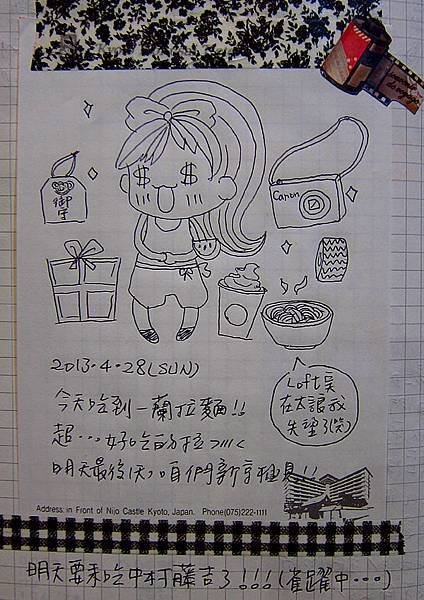 御守
Canon
2013.4.28(SUN)
今天吃到一蘭拉麵!!
超...好吃的拉
Loft實
在太讓我
失望了(哭)
明天最後1天,咱們新京極見!!
Address: in Front of Nijo Castle Kyoto, Japan. Phone(075)222-1111
明天要來吃中村藤吉了!!!(雀躍中...)